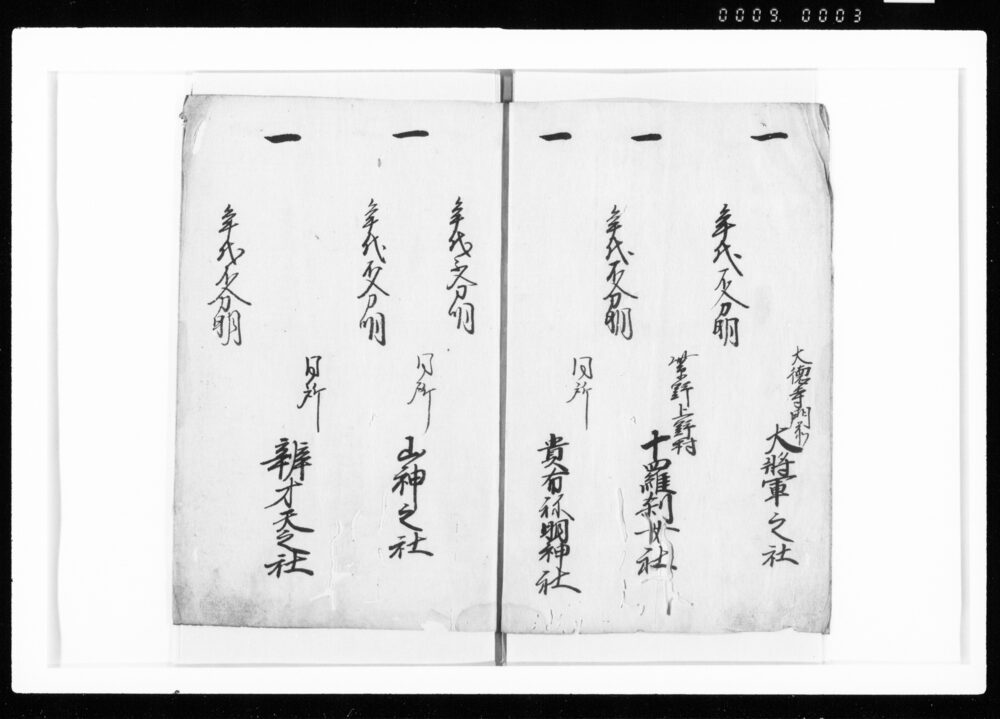 0009. 0003
一 大徳寺門前 大将軍之社
年代不分明
一 紫野上野村 十羅刹女社
年代不分明
一 同所 貴布祢明神社
年代不分明
一 同所 山神之社
年代不分明
一 同所 辨才天之社
年代不分明